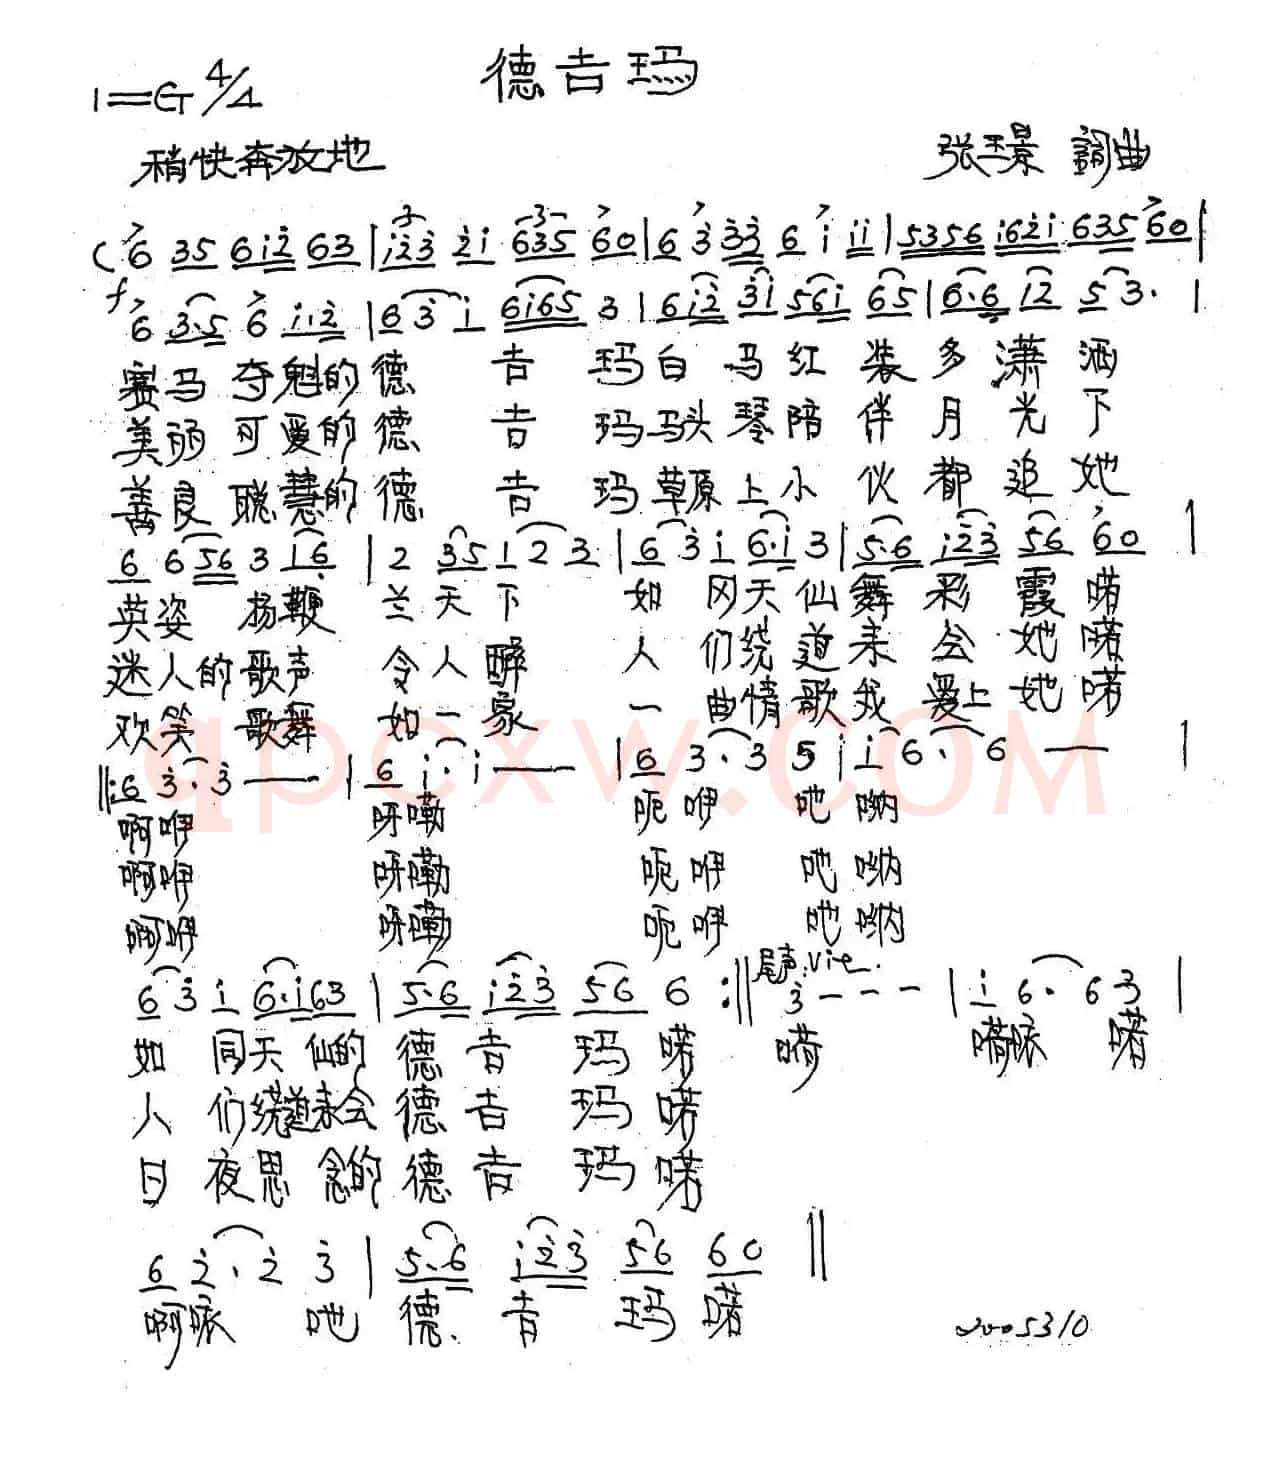 德吉玛
1=G 4/4
稍快奔放地
张玉景 詞曲
( 6 35 6i2 63 | i23 2i 635 60 | 6 3 33 6 i ii | 5356 i62i 635 60 |
f
6 3.5 6 i.2 | 6 3 i 6i65 3 | 6i2 3i 56i 65 | 6.6 i2 5 3. |
赛马夺魁的德 吉 玛白马红装多潇洒
美丽可爱的德 吉 玛马头琴陪伴月光下
善良聪慧的德 吉 玛草原上小伙都追她
6 6 56 3 16 | 2 35 1 2 3 | 6 3 i 6.i 3 | 5.6 i23 56 60 |
英姿 扬鞭 兰天下 如同天仙舞彩霞喏
迷人的歌声 令人醉 人们绕道来会她喏
欢笑歌舞 如一家 一曲情歌我爱上她喏
‖: 6 3.3 — | 6 i.i — | 6 3.3 5 | i 6.6 — |
啊咿 呀嘞 呃咿 吔 哟
啊咿 呀嘞 呃咿 吔 哟
啊咿 呀嘞 呃咿 吔 哟
6 3 i 6.i63 | 5.6 i23 56 6 :‖ 尾声 3 - - - | i 6. 6 3 |
如 同天仙的 德吉 玛 喏 嗬 嗬咴 喏
人 们绕道来会 德吉 玛 喏
日 夜思念的 德吉 玛 喏
6 2.2 3 | 5.6 i23 56 60 ‖
啊咴 吔 德 吉 玛 喏
2005310
qpcxw.COM